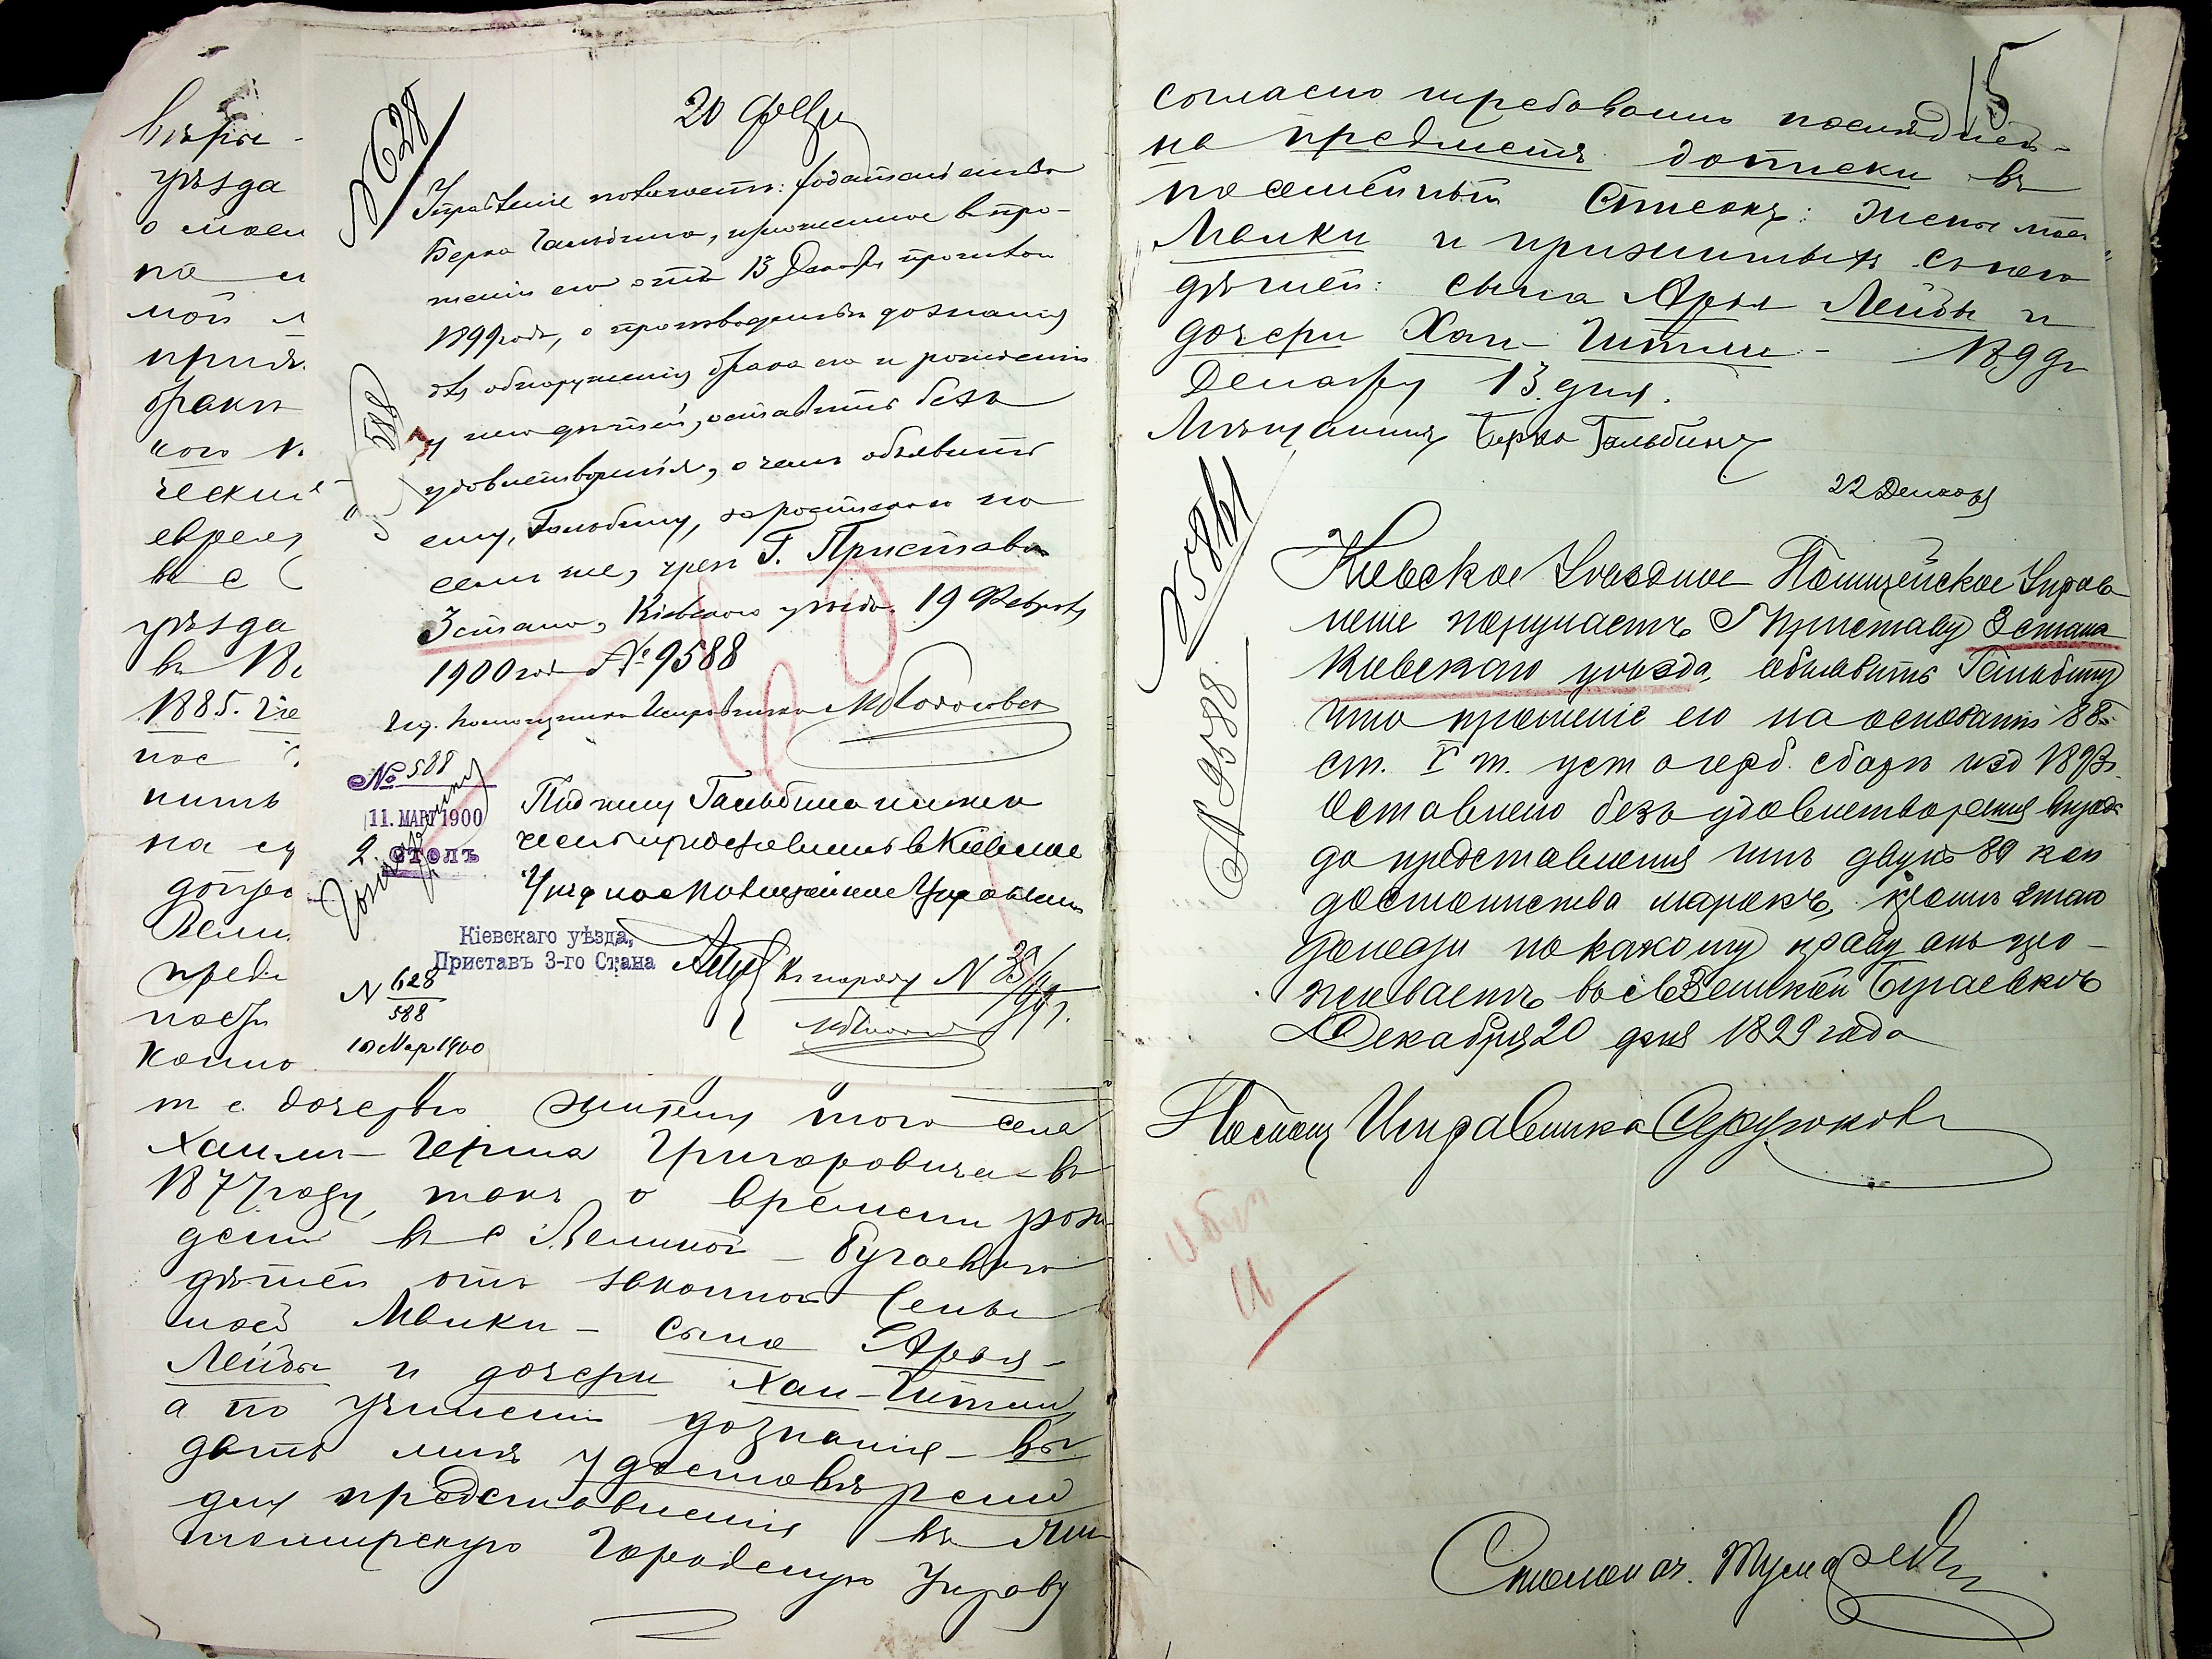 вѣры
уѣзда
о моем
по
мой
придѣ
браки
ческій
еврея
в с
уѣзда
въ 18
1885.
пос
нить
на су
допро
Вели
пред
поср
коино
№ 628
20 Февр
Управленіе полагаетъ: ходатайство
Берка Гальбина, изложенное в про-
шеніи его отъ 13 Декабря прошлаго
1899 года, о производствѣ дознанія
для обнаруженія брака его и рожденія
у него дѣтей, оставить безъ
удовлетворенія, о чемъ объявить
ему, Гальбину, за роспискою на
семъ же, чрез Г. Пристава
3 стана, Кіевскаго уѣзда. 19 Февраля
1900 года № 9588
За Помощника Исправника
№ 588
11. МАРТ 1900
2. СТОЛЪ
Подписку Гальбина имѣю
честь представить в Кіевское
Уѣздное Полицейское Управленіе
Кіевскаго уѣзда,
Приставъ 3-го Стана
N 628
588
10 Мар 1900
К наряду N
т с. дочерью жителя того села
Хаима-Герша Григоровича въ
1877 году, такъ о времени рож
денія в с Великой-Бугаевки
дѣтей отъ законной жены
моей Малки - сына Арья-
Лейбы и дочери Хаи-Гитли,
а по учиненіи дознанія - вы
дать мнѣ удостовѣреніе
для представленія въ Жи
томирскую Городскую Управу
15
согласно требованію послѣдней-
на предметъ дописки въ
посемейный списокъ: жены моей
Малки и прижитыхъ с нею
дѣтей: сына Арья Лейбы и
дочери Хаи-Гитли - 1899 г
Декабря 13 дня.
Мѣщанинъ Берко Гальбинъ
22 Декабря
№ 9588
Кіевское Уѣздное Полицейское Управ
леніе поручаетъ Г Приставу 3 стана
Кіевскаго уѣзда, объявить Гальбину
что прошеніе его на основаніи 88
ст. V т. уст о герб. сборѣ изд 1893 г.
оставлено безъ удовлетворенія впредь
до представленія имъ двухъ 80 коп
достоинства марокъ, кромѣ того
по какому праву онъ про-
живаетъ въ с Великой Бугаевкѣ
Декабря 20 дня 1899 года
Помощ Исправника
Столонач.